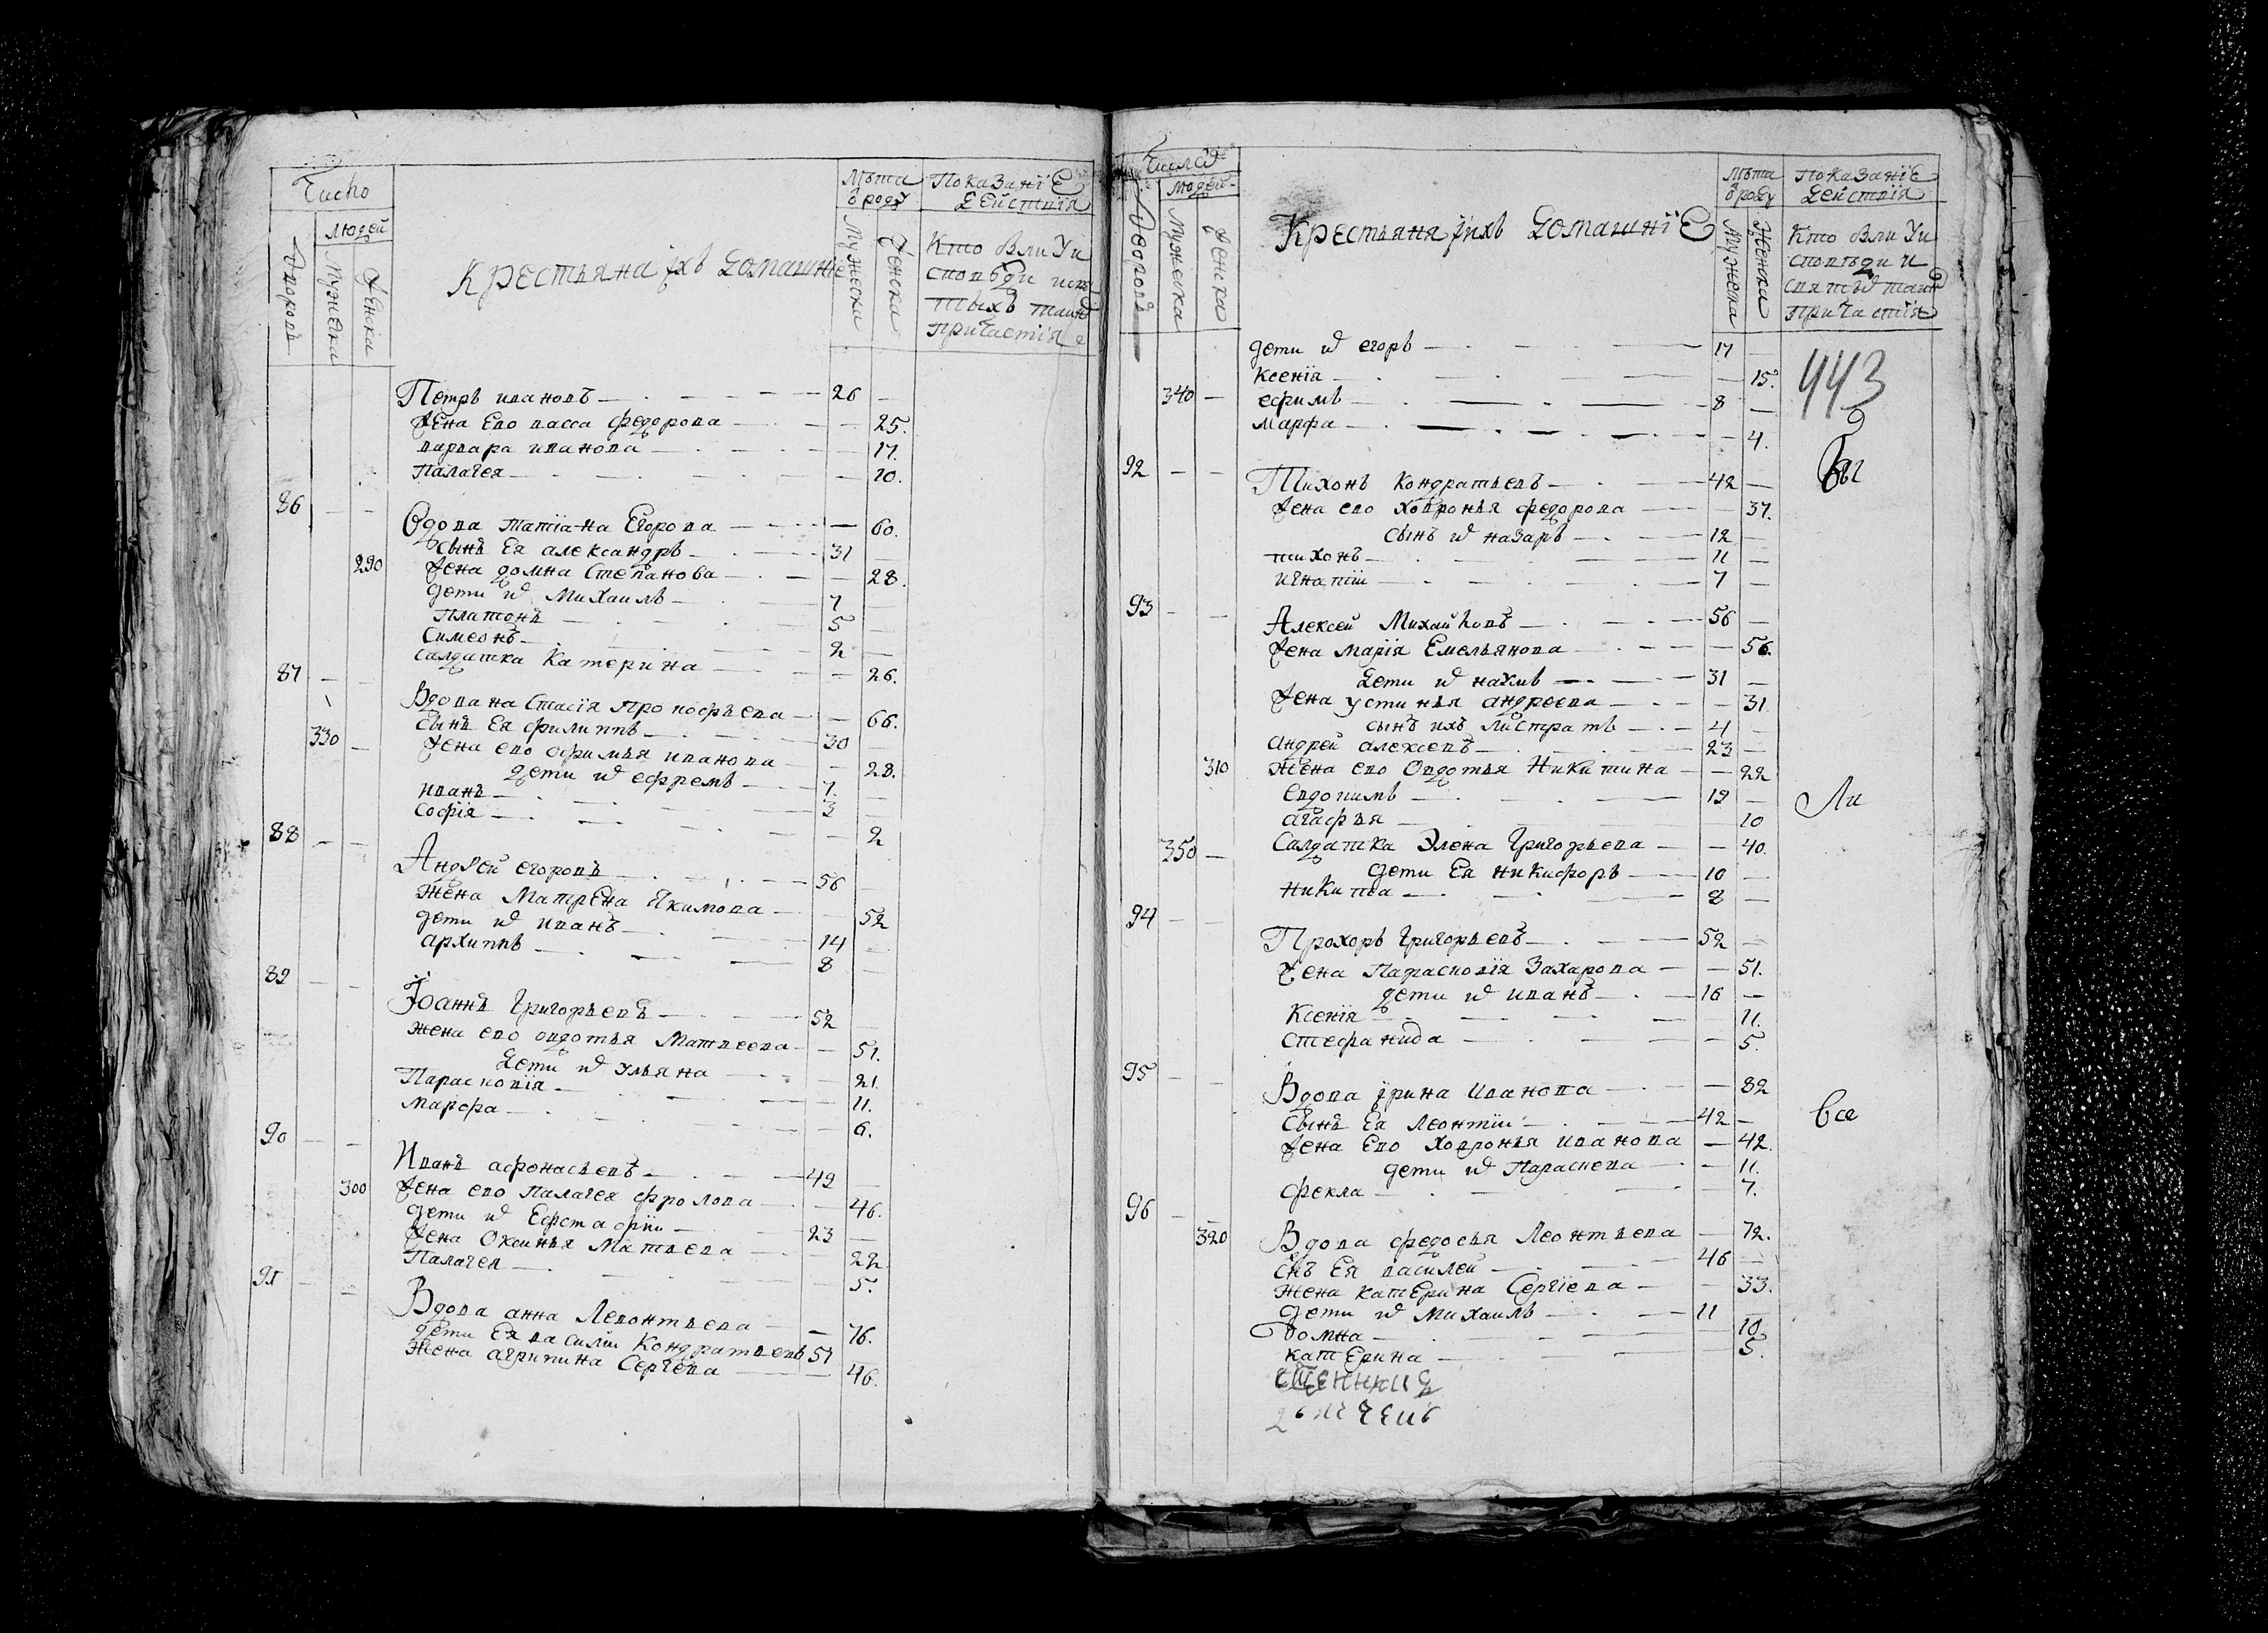 Число
людей
Дворовъ
Мужеска
Женска
Крестьяна ихъ домашне
Лѣта
ѿ роду
Мужеска
Женска
Показаніе
действія
Кто былъ у и
споведи
тыхъ таин
причастія
Петръ ивановъ 26
жена ево васса федорова 25.
варвара иванова 17.
Палагея 10.
86
Вдова татіана Егорова 60.
сынъ Ея александръ 31
290 жена домна Степанова 28.
дети их Михаилъ 7
Платонъ 5
Симеонъ 2
салдатка Катерина 26.
87
Вдова настасія Прокофьева 66.
сынъ Ея филиппъ 30
330 жена ево офимья иванова 28.
дети их ефремъ 7.
иванъ 3
Софія 2
88
Андрей егоровъ 56
жена Матрена Якимова 52
дети их иванъ 14
архиппъ 8
89
Іоаннъ Григорьевъ 52
жена ево овдотья Матвеева 51.
дети их Ульяна 21.
Парасковія 11.
Марфа 6.
90
Иванъ афонасьевъ 49
300 жена ево Палагея фролова 46.
дети их Еѳстафіи 23
жена Оксинья Матвева 22
Палагея 5.
91
Вдова анна Левонтьева 76.
дети Ея василіи Кондратьевъ 51
жена агрипина Сергева 46.
Число
людей
Дворовъ
Мужеска
Женска
Крестьяня ихъ домашніЕ
Лѣта
ѿ роду
Мужеска
Женска
ПоказаніЕ
действія
Кто былъ у и
споведи и
святых таин
причастія
дети их егоръ 17
Ксенія 15.
340 ефимъ 8
Марфа 4.
443
92
Тихонъ Кондратьевъ 42
жена ево Ховронья федорова 37.
сынъ их назаръ 12
тихонъ 11
игнатіи 7
93
Алексей Михайловъ 56
жена Марія Емельянова 56.
дети их нахимъ 31
жена устинья андреева 31
сынъ ихъ листратъ 4
андрей алексевъ 23
310 жена ево Овдотья Никитина 22
Евдокимъ 12
агафья 10
Ли
350 Салдатка Элена Григорьева 40.
дети Ея никифоръ 10
никита 8
94
Прохоръ Григорьевъ 52
жена Парасковія Захарова 51.
дети их иванъ 16
Ксенія 11.
стефанида 5.
95
Вдова ірина иванова 82
Сынъ Ея леонтіи 42
жена Ево Ховронья иванова 42.
дети их Параскева 11.
фекла 7.
все
96
320 Вдова федосья Леонтьева 72.
снъ Ея василей 46
жена катЕрина Сергіева 33.
дети их Михаилъ 11
домна 10
катЕрина 5.